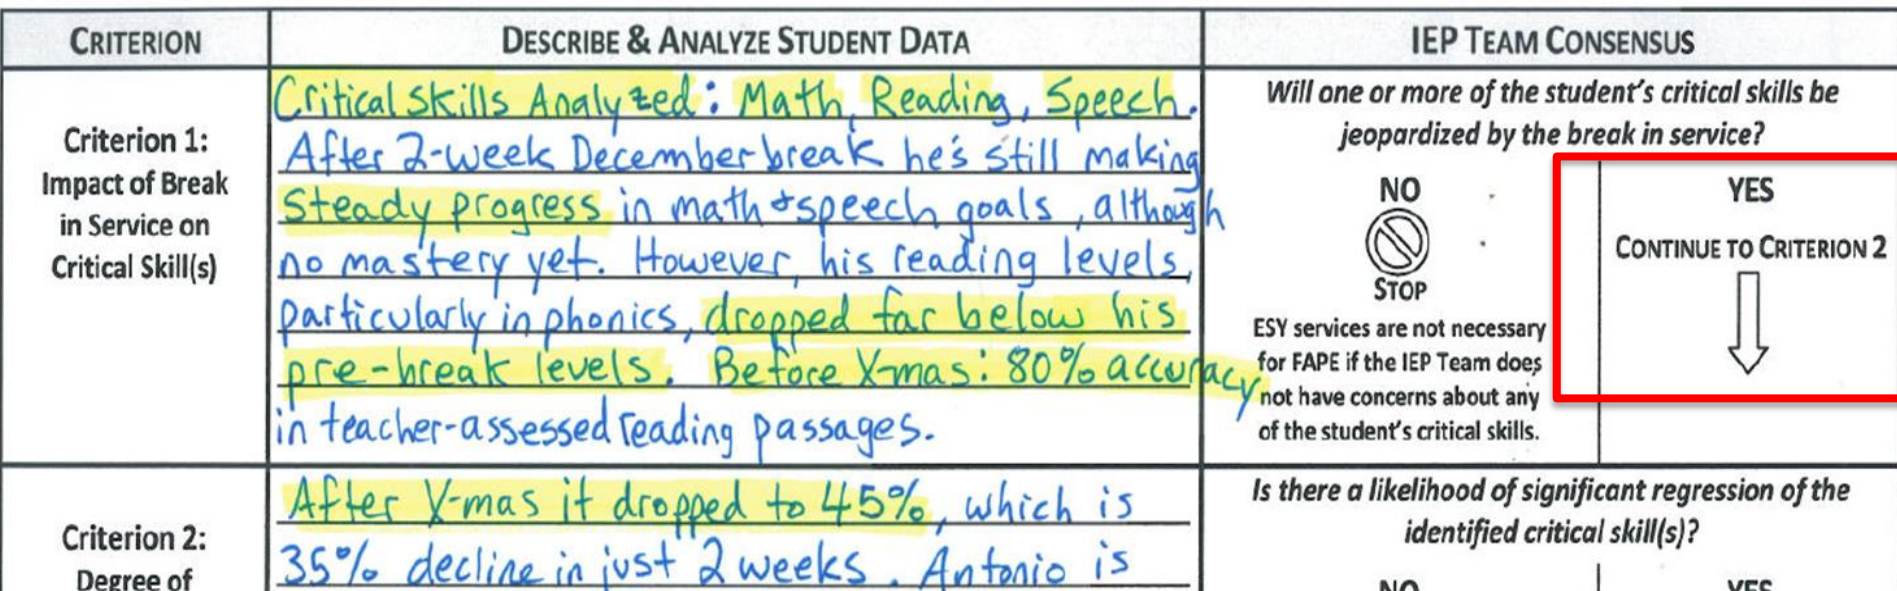 CRITERION
DESCRIBE & ANALYZE STUDENT DATA
IEP TEAM CONSENSUS
Criterion 1:
Impact of Break
in Service on
Critical Skill(s)
Critical Skills Analyzed: Math, Reading, Speech.
After 2-week December break he's still making
steady progress in math & speech goals, although
no mastery yet. However, his reading levels,
particularly in phonics, dropped far below his
pre-break levels. Before X-mas: 80% accuracy
in teacher-assessed reading passages.
Will one or more of the student's critical skills be
jeopardized by the break in service?
NO
STOP
ESY services are not necessary
for FAPE if the IEP Team does
not have concerns about any
of the student's critical skills.
YES
CONTINUE TO CRITERION 2
Criterion 2:
Degree of
After X-mas it dropped to 45%, which is
35% decline in just 2 weeks. Antonio is
Is there a likelihood of significant regression of the
identified critical skill(s)?
NO
YES